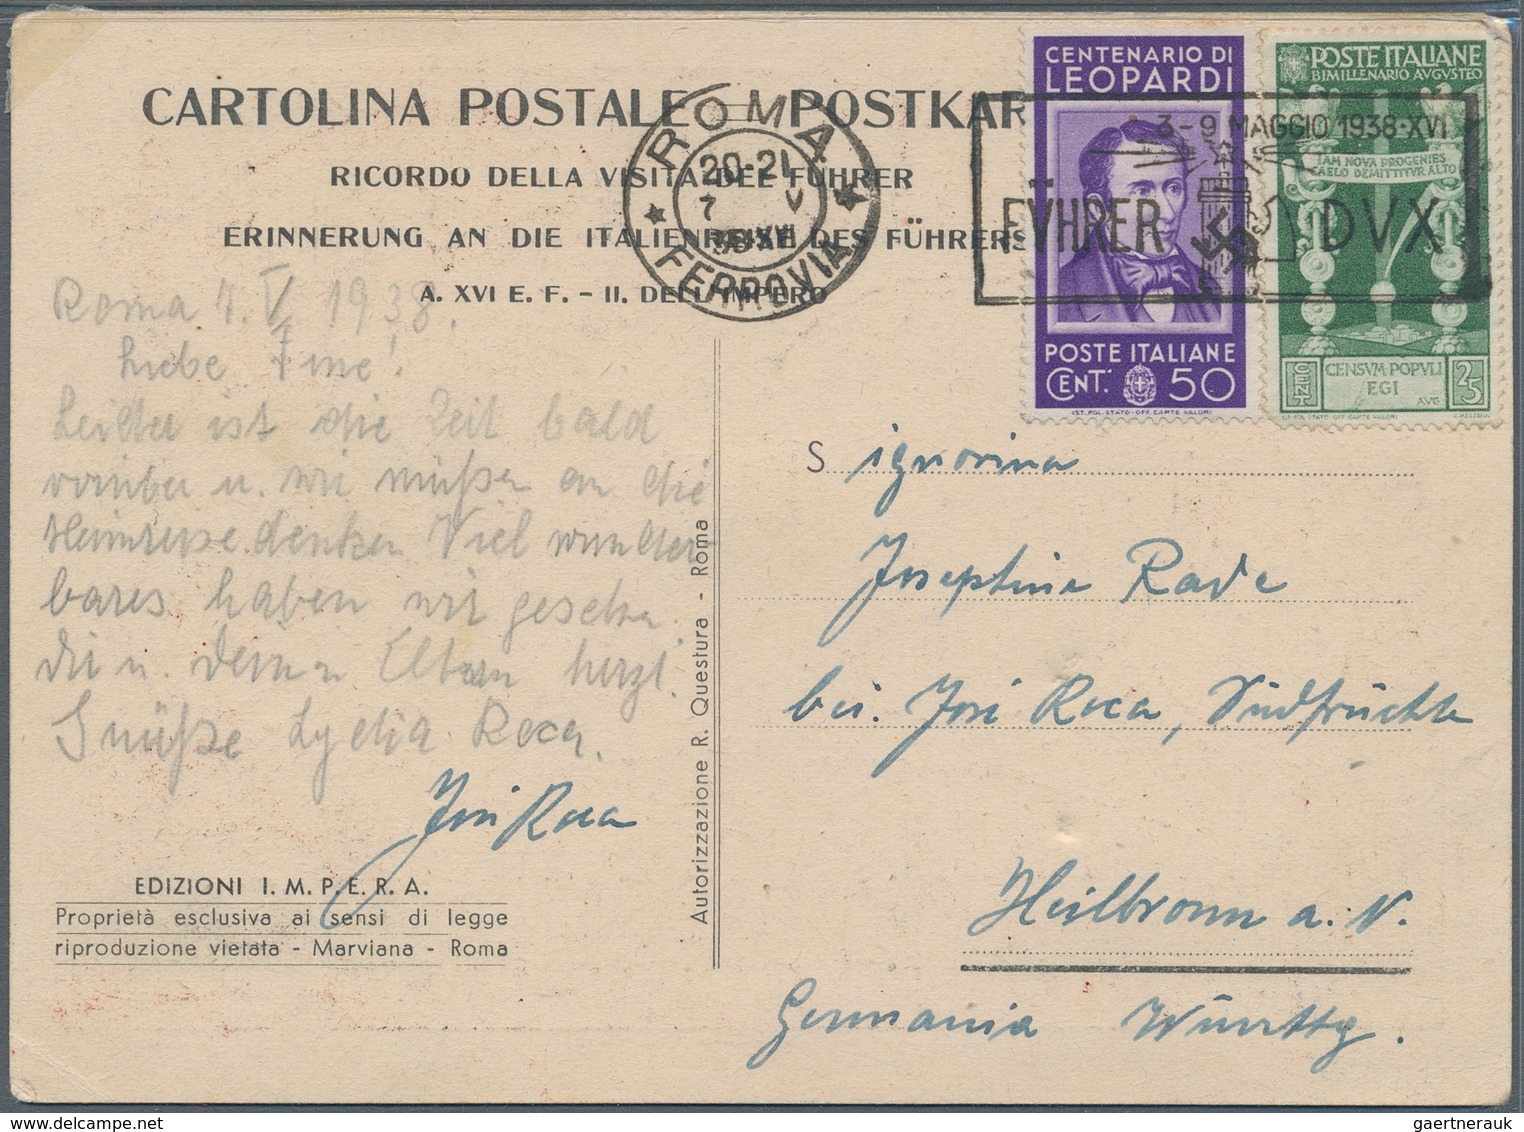 CARTOLINA POSTALE — POSTKAR
RICORDO DELLA VISITA DEL FÜHRER
ERINNERUNG AN DIE ITALIENREISE DES FÜHRERS
A. XVI E. F. - II. DELL'IMPERO
ROMA
20-21
7 V
38·XVI
FERROVIA
3-9 MAGGIO 1938·XVI
FÜHRER DVX
CENTENARIO DI
LEOPARDI
POSTE ITALIANE
CENT. 50
IST. POL. STATO - OFF. CARTE VALORI
POSTE ITALIANE
BIMILLENARIO AVGVSTEO
IAM NOVA PROGENIES
CAELO DEMITTITVR ALTO
CENSVM POPVLI
EGI
AVG
CENT 25
IST. POL. STATO - OFF. CARTE VALORI
Roma 7. V. 1938.
Liebe Fine!
Leider ist die Zeit bald
vorüber u. wir müßen an die
Heimreise denken. Viel wunder-
bares haben wir gesehen.
Dir u. deinen Eltern herzl.
Grüße Lydia Roca.
José Roca
EDIZIONI I. M. P. E. R. A.
Proprietà esclusiva ai sensi di legge
riproduzione vietata - Marviana - Roma
Autorizzazione R. Questura - Roma
Signorina
Josephine Rade
bei José Roca, Südfrüchte
Heilbronn a. N.
Germania Württbg.
gaertnerauk